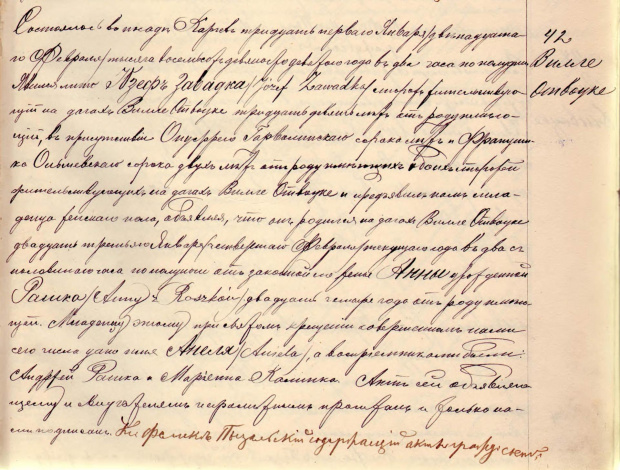 Состоялось въ посадѣ Карчевѣ тридцать перваго Января /двѣнадцата-
го Февраля/ тысяча восемьсотъ девяностодевятаго года въ два часа по полудни
Явился лично Юзефъ Завадка /Józef Zawadka/ стороф жительствую-
щій на дачахъ Вилле Отвоцке тридцати девяти лѣтъ отъ роду имею-
щій, въ присутствіи Онуфрего Гарволинскаго сорока лѣтъ и Франциш-
ка сорока двухъ лѣтъ отъ роду имеющихъ обоихъ
жительствующихъ на дачахъ Вилле Отвоцке и предъявилъ намъ мла-
денца женскаго пола, объявляя, что онъ родился на дачахъ Вилле Отвоцке
двадцать третьяго Января /четвертаго Февраля/ текущаго года въ два съ
половиною часа по полуночи отъ законной его жены Анны урожденной
Рашка /Anny z Raszków/ двадцать четыре года отъ роду имею-
щей. Младенцу этому при святомъ крещеніи совершенномъ нами
сего числа дано имя Анеля /Aniela/, а воспріемниками были:
Андрей Рашка и Маріанна Калинка. Актъ сей объявляю-
щему и свидѣтелямъ неграмотнымъ прочитанъ и только на-
ми подписанъ. Кс. содержащій акты гражд. сост.
42
Вилле
Отвоцке